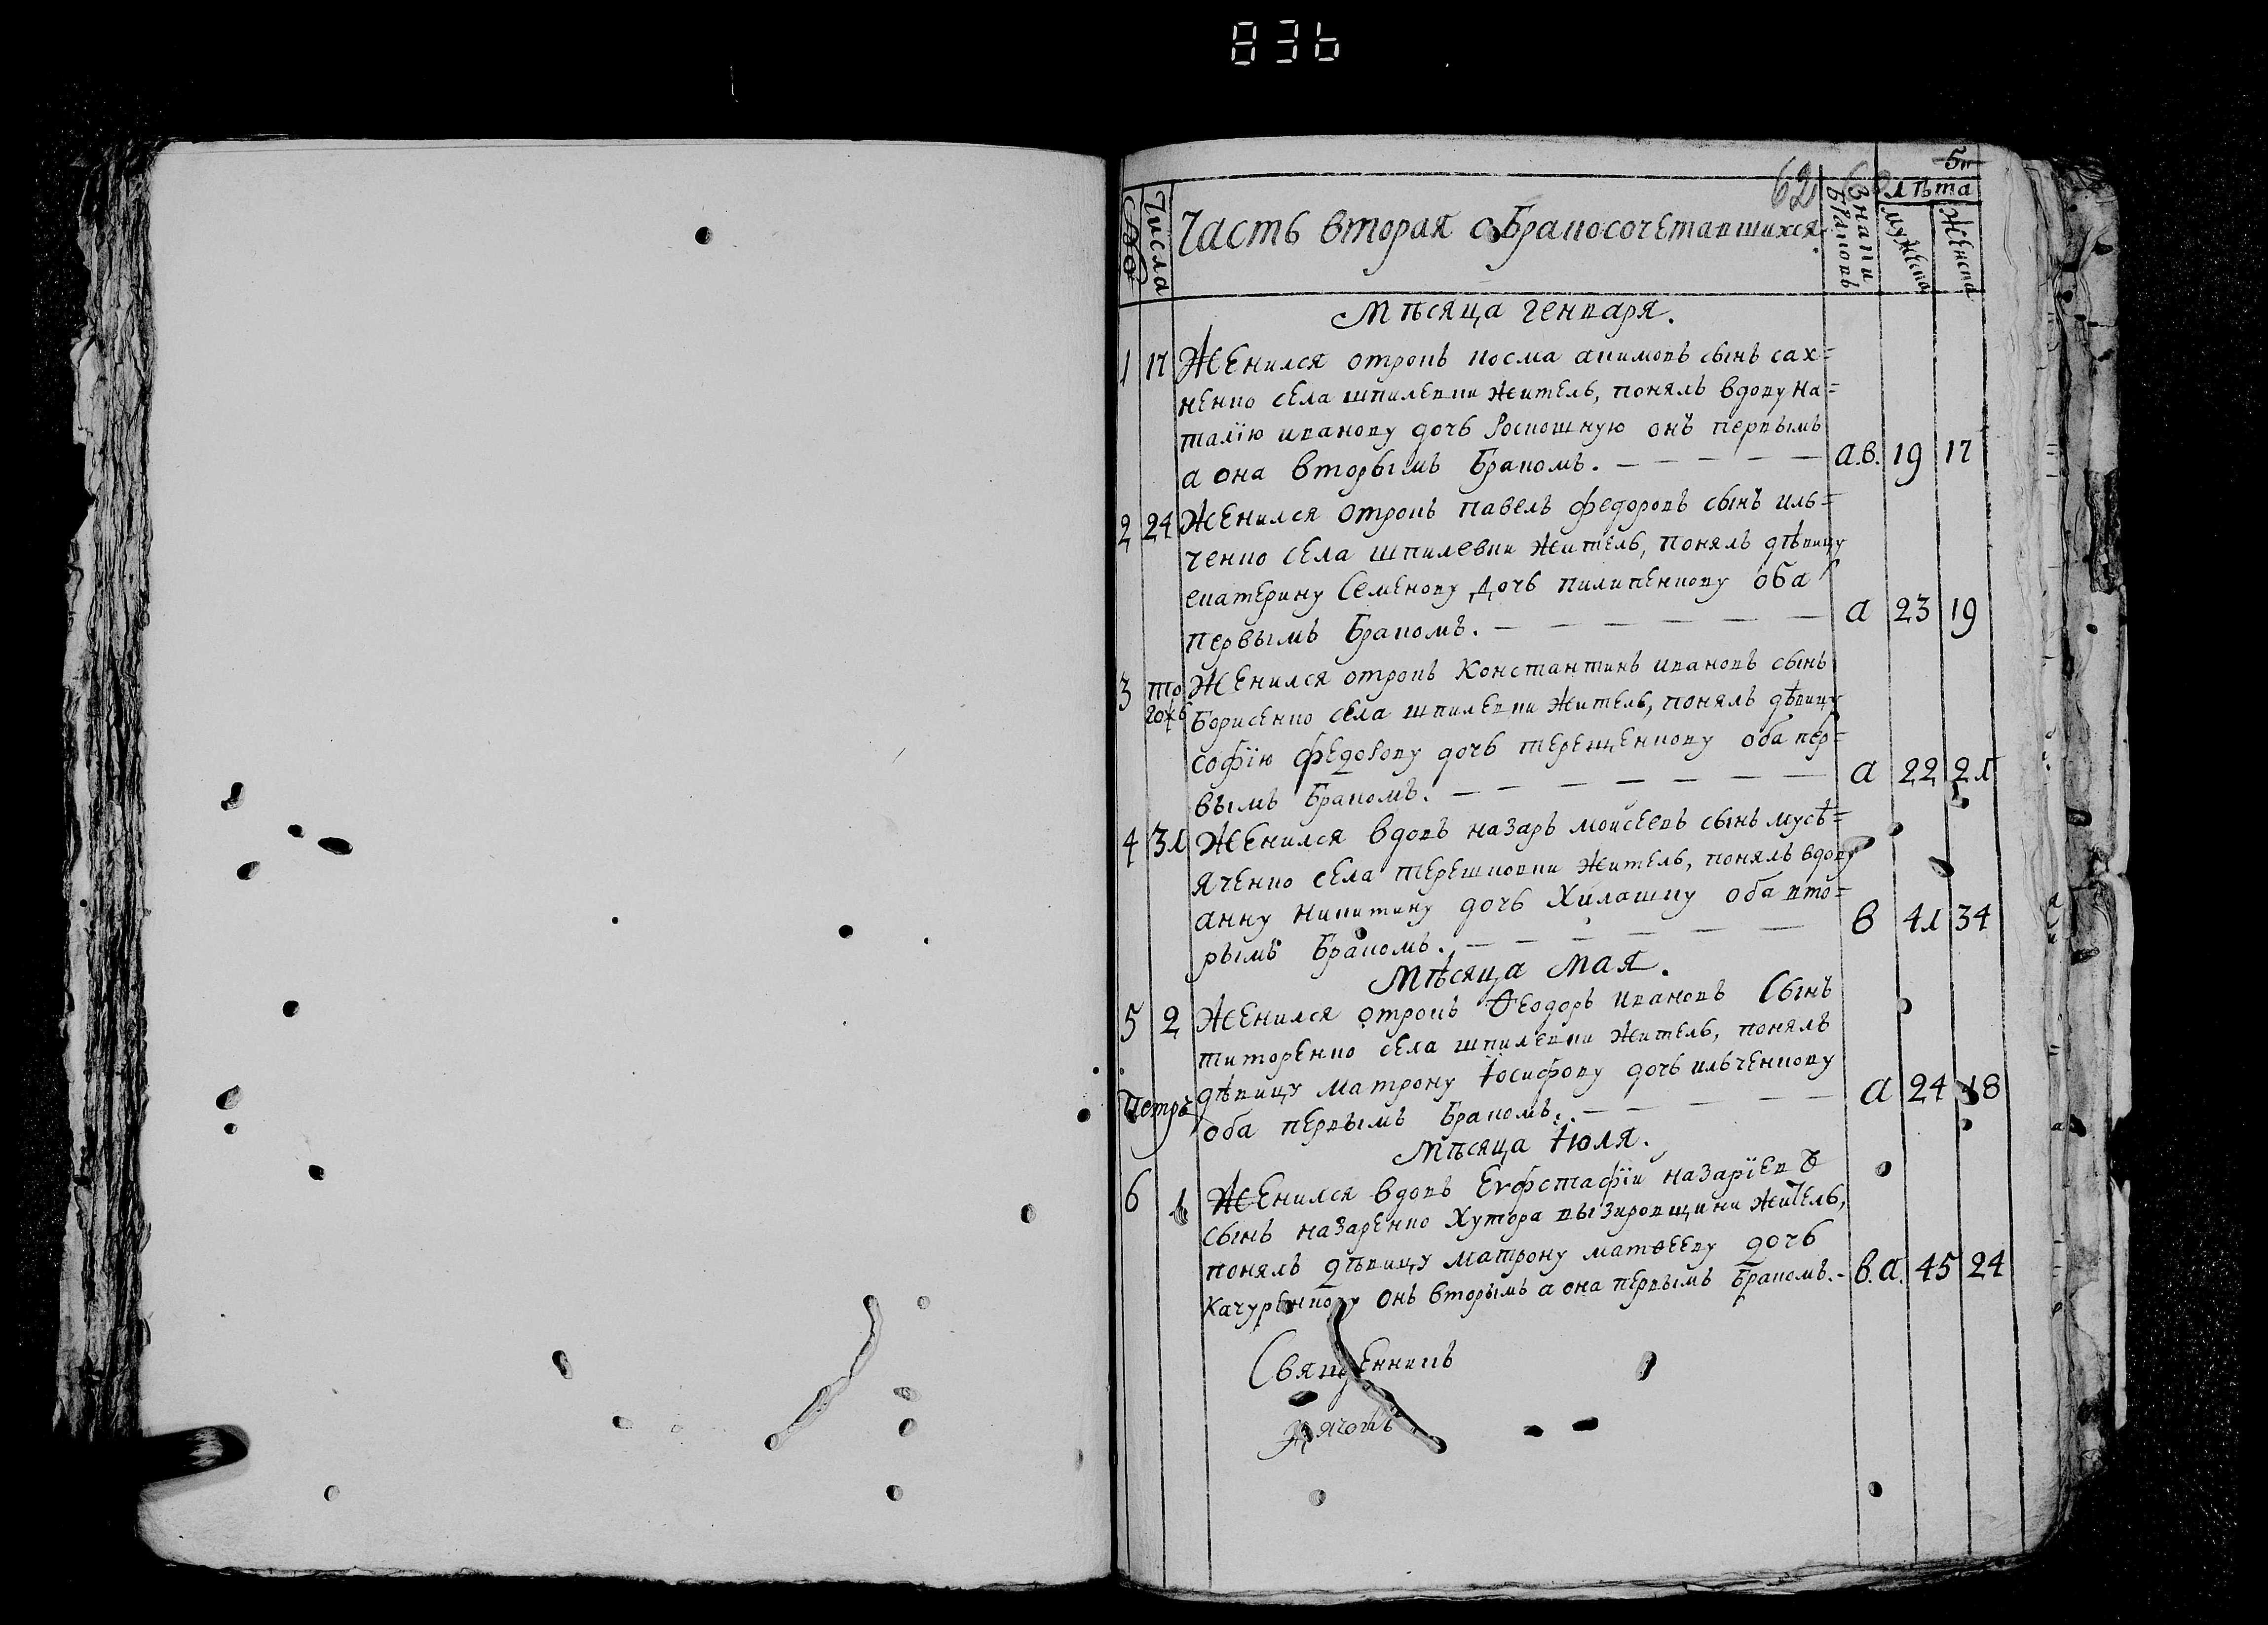 836
5
62
№
Числа
Часть вторая о Бракосочетавшихся.
Знаки Бѣковъ
лѣта
мужеска
Женска
Мѣсяца генваря.
1 17 Женился отрокъ косма акимовъ сынъ сах=
ненко села шпилевки житель, понялъ вдову на=
талїю иванову дочь Роскошную онъ первымъ
а она вторымъ Бракомъ. — — — — — а.в. 19 17
2 24 Женился отрокъ павелъ федоровъ сынъ иль=
ченко села шпилевки житель, понялъ дѣвицу
екатерину Семенову дочь пилипенкову оба
первымъ Бракомъ. — — — — — — а 23 19
3 то гожъ Женился отрокъ Константинъ ивановъ сынъ
Борисенко села шпилевки житель, понялъ дѣвицу
софїю федорову дочь терещенкову оба пер=
вымъ Бракомъ. — — — — — — — а 22 21
4 31 Женился вдовъ назаръ моисеевъ сынъ мусѣ=
яченко села терешковки житель, понялъ вдову
анну никитину дочь Хилашку оба вто=
рымъ Бракомъ. — — — — — — — в 41 34
Мѣсяца мая.
5 2 Женился отрокъ Ѳеодоръ ивановъ Сынъ
титоренко села шпилевки житель, понялъ
дѣвицу матрону Іосифову дочь ильченкову
Петръ
оба первымъ Бракомъ. — — — — — а 24 18
Мѣсяца Іюля.
6 1 Женился вдовъ Еѵфстафїи назарїевъ
сынъ назаренко Хутора вызировщини житель,
понялъ дѣвицу матрону матѳееву дочь
Качуренкову онъ вторымъ а она первымъ Бракомъ.- в.а. 45 24
Священникъ
Дячокъ